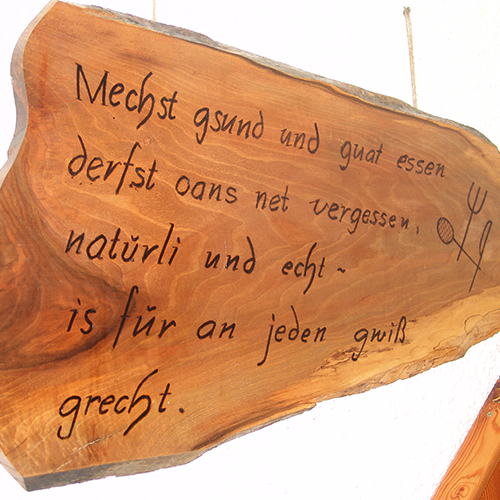 Mechst gsund und guat essen
derfst oans net vergessen,
natŭrli und echt ~
is fŭr an jeden gwiß
grecht.